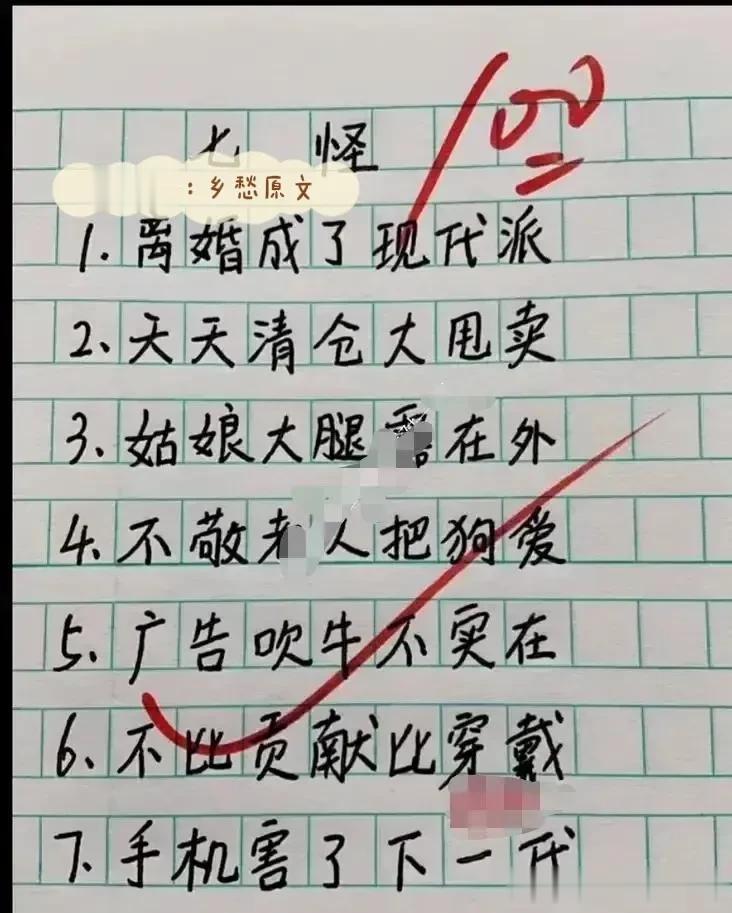 七怪
100
:乡愁原文
1. 离婚成了现代派
2、天天清仓大甩卖
3、姑娘大腿露在外
4、不敬老人把狗爱
5、广告吹牛不实在
6、不比贡献比穿戴
7、手机害了下一代